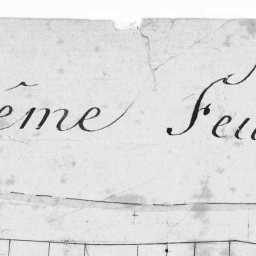 ême Feu